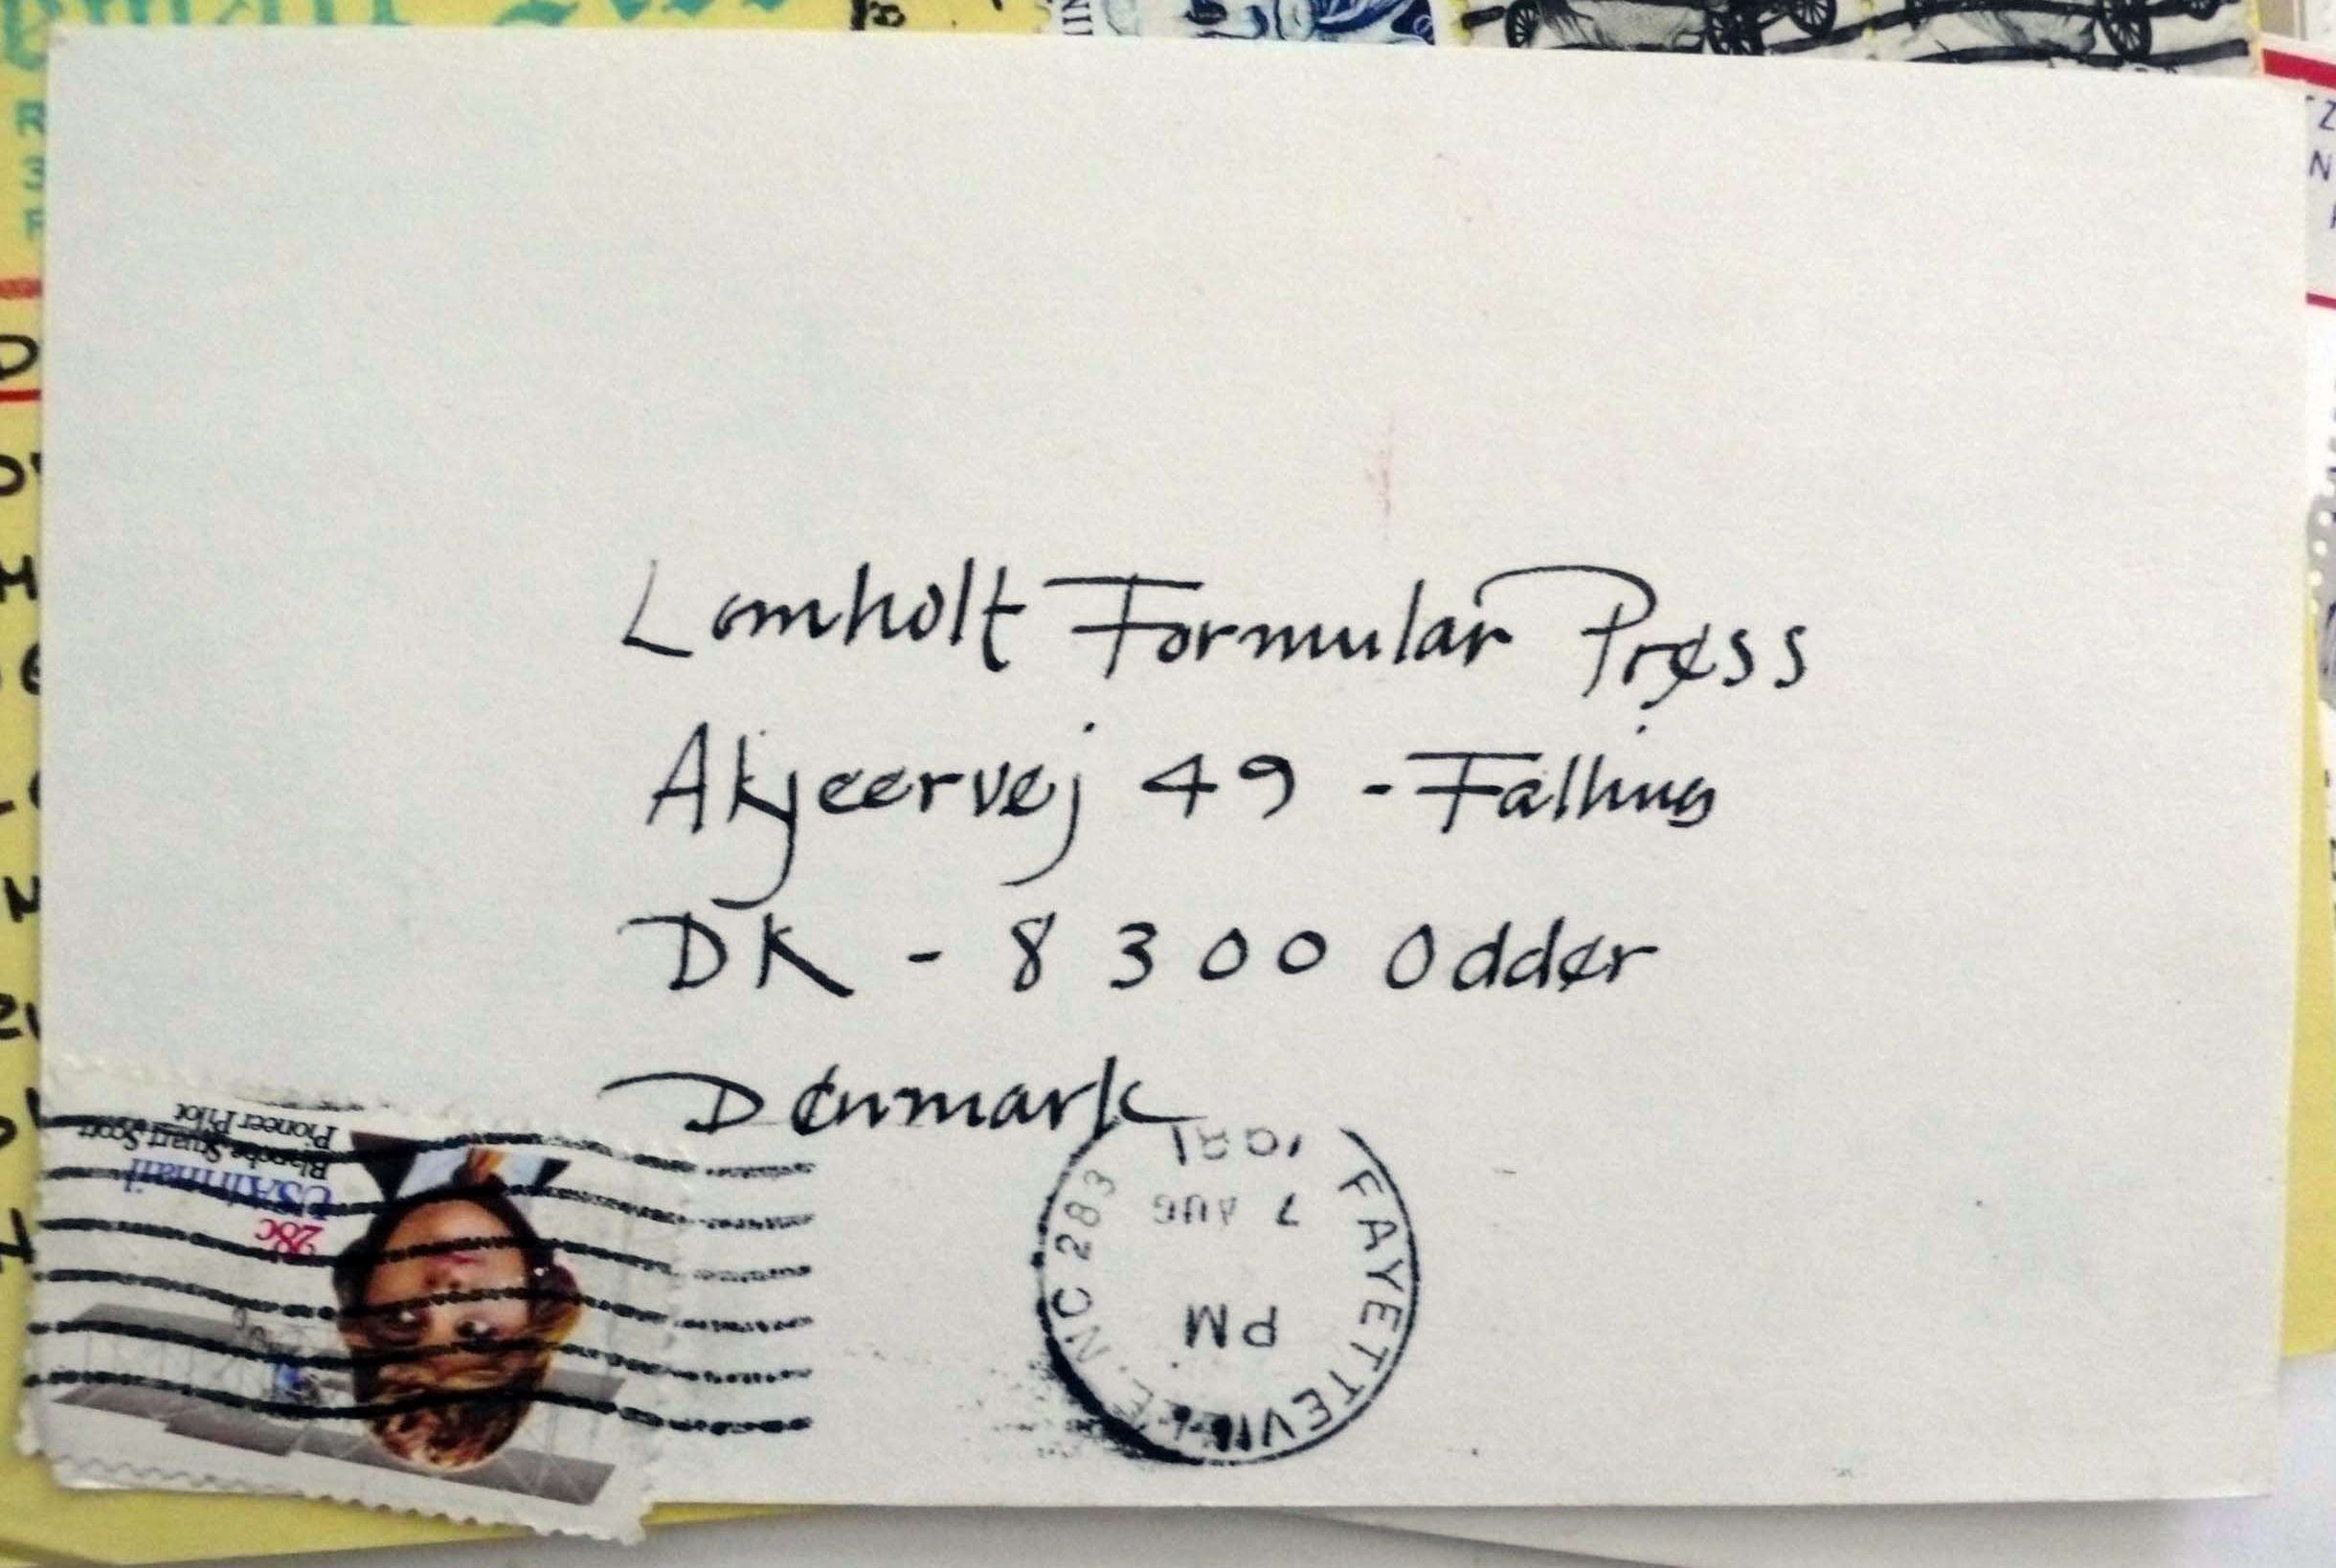 Lomholt Formular Press
Akjeervej 49 - Falling
DK - 8300 Odder
Denmark
Blanche Stuart Scott
Pioneer Pilot
USAirmail
28c
FAYETTEVILLE, NC 283
PM
7 AUG
1981